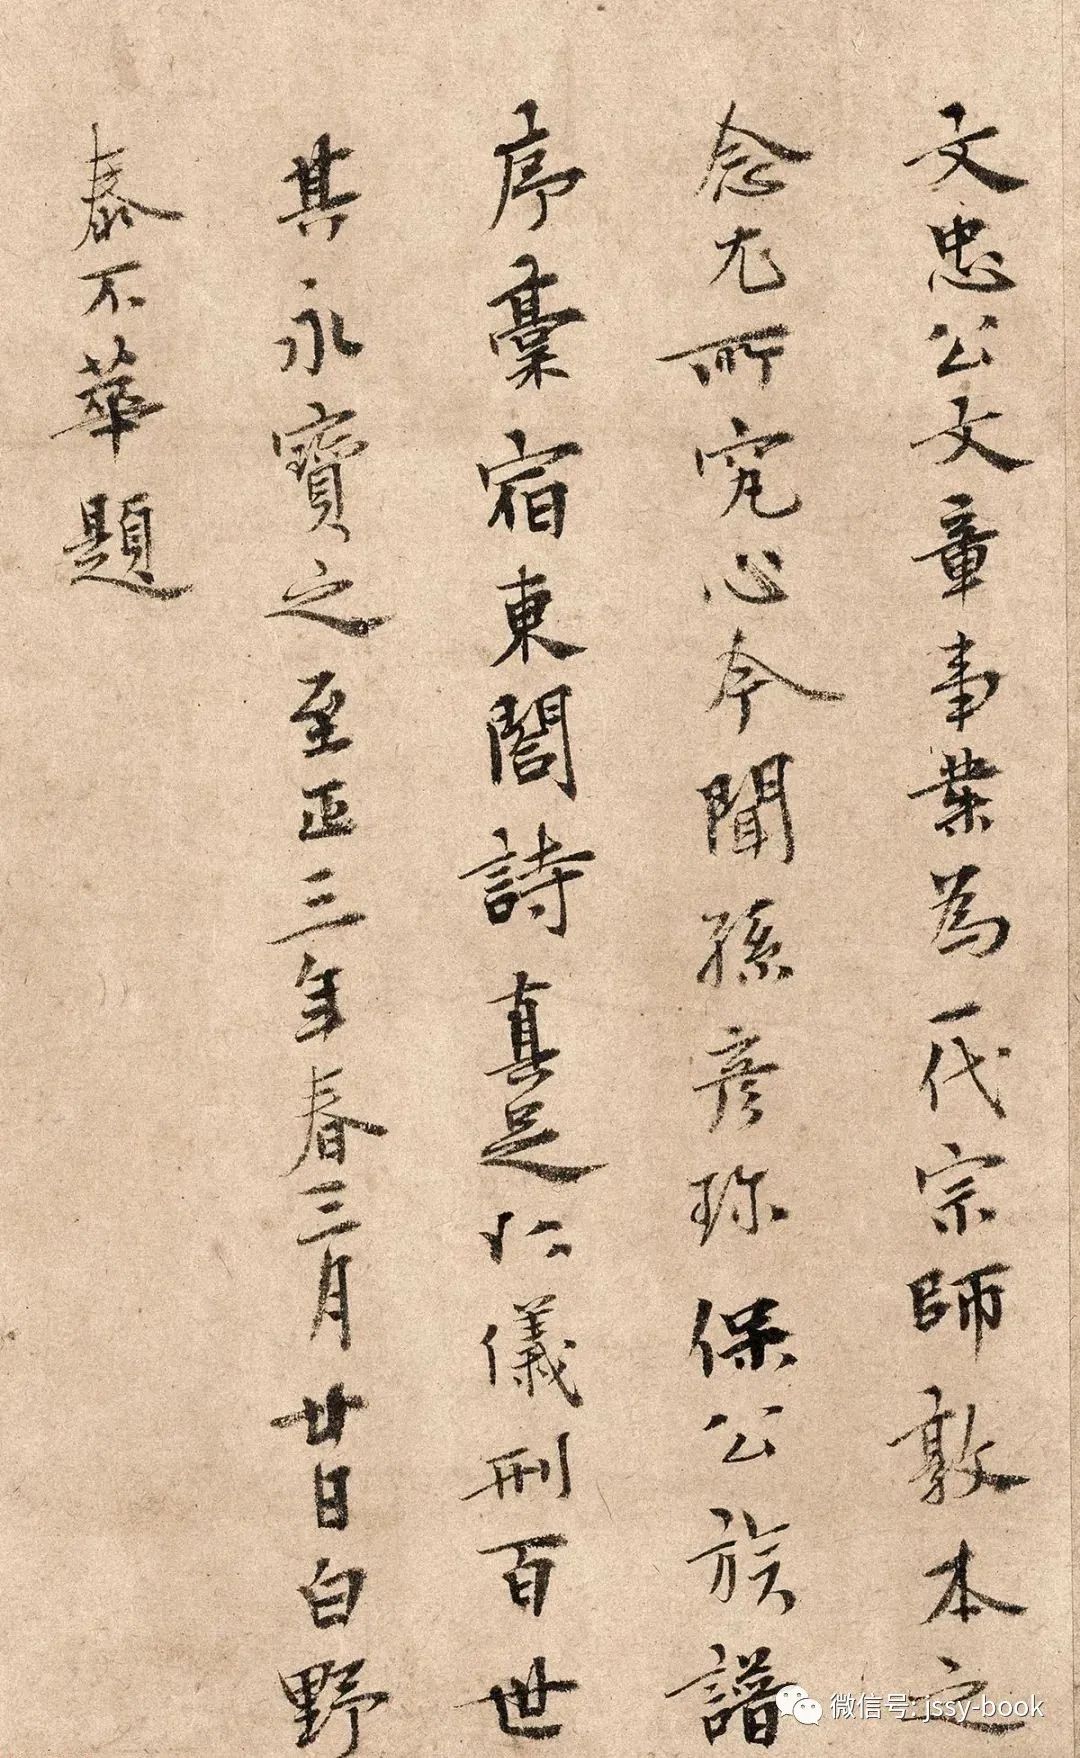 文忠公文章事業為一代宗師敦本之
念尤所究心今聞孫彦珎保公族譜
序藁宿東閤詩真足以儀刑百世
其永寶之至正三年春三月廿日白野
泰不華題
微信号: jssy-book